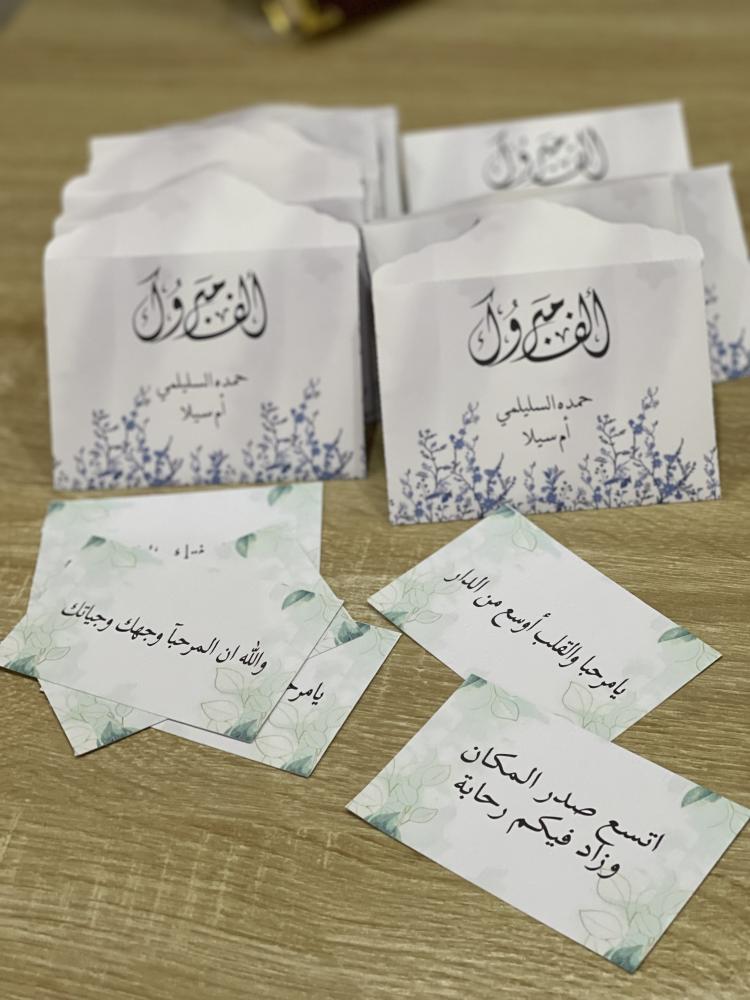 ألف مبروك
ألف مبروك
حمده السليلمي
أم سيلا
ألف مبروك
حمده السليلمي
أم سيلا
والله ان المرحبآ وجهك وجياتك
يامرح
يامرحبا والقلب أوسع من الدار
اتسع صدر المكان
وزاد فيكم رحابة